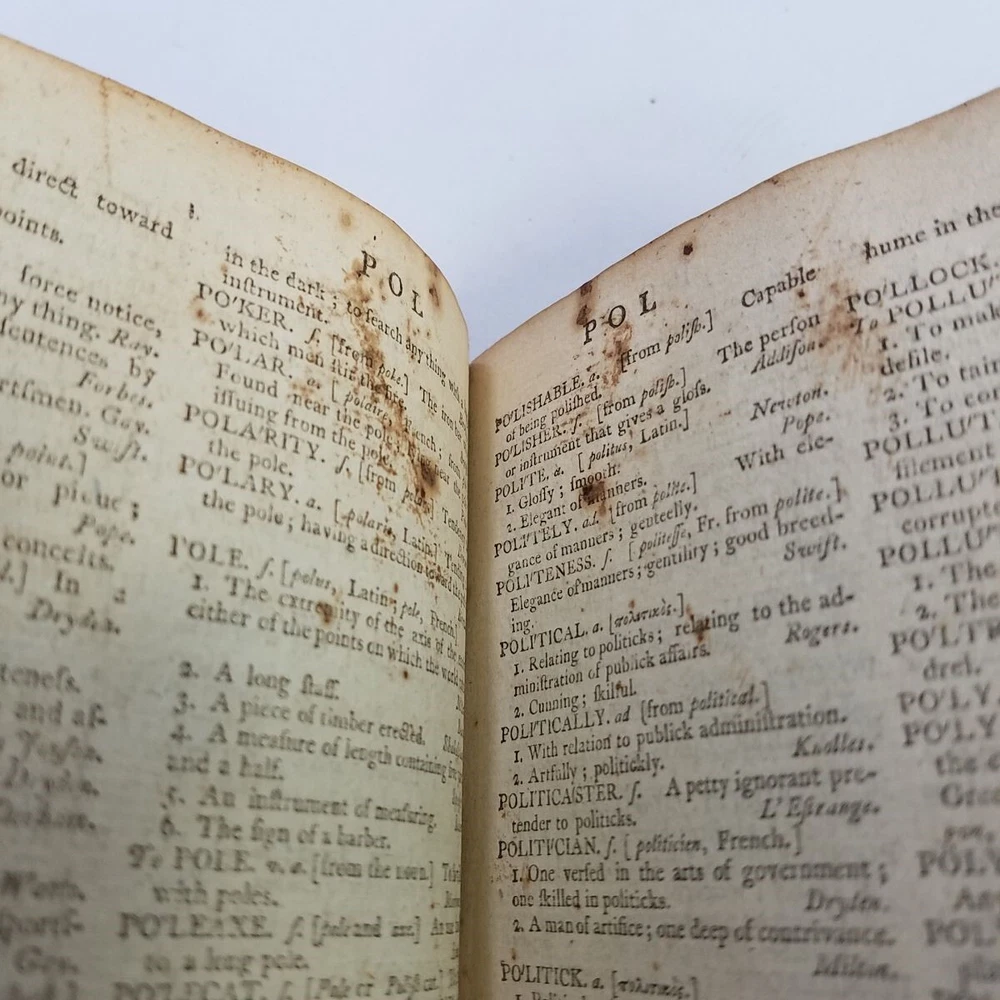 direct toward
points.
force notice,
any thing. Ray.
sentences by
Forbes.
Gay.
Swift.
point.]
or pique;
Pope.
conceits.
In a
Dryden.
and af-
POL
in the dark; to ſearch any thing with
inſtrument.
PO'KER. ſ. [from poke.] The iron bar
which men ſtir the fire.
PO'LAR. a. [polaire, French; from
Found near the pole; lying near the
iſſuing from the pole.
POLA'RITY. ſ. [from polar.]
the pole.
PO'LARY. a. [polaris, Latin.]
the pole; having a direction toward the
POLE. ſ. [polus, Latin; pole, French.]
1. The extremity of the axis of the
either of the points on which the world
2. A long ſtaff.
3. A piece of timber erected.
4. A meaſure of length containing five
and a half.
5. An inſtrument of meaſuring.
6. The ſign of a barber.
To POLE. v. a. [from the noun.]
with poles.
PO'LEAXE. ſ. [pole and axe.]
to a long pole.
PO'LECAT. ſ. [Pole or Poliſh cat.]
POL
PO'LISHABLE. a. [from poliſh.] Capable
of being poliſhed.
PO'LISHER. ſ. [from poliſh.] The perſon
or inſtrument that gives a gloſs. Addiſon.
POLI'TE. a. [politus, Latin.]
1. Gloſſy; ſmooth. Newton.
2. Elegant of manners. Pope.
POLI'TELY. ad. [from polite.] With ele-
gance of manners; genteelly.
POLI'TENESS. ſ. [politeſſe, Fr. from polite.]
Elegance of manners; gentility; good breed-
ing. Swift.
POLI'TICAL. a. [πολιτικὸς.]
1. Relating to politicks; relating to the ad-
miniſtration of publick affairs. Rogers.
2. Cunning; ſkilful.
POLI'TICALLY. ad [from political.]
1. With relation to publick adminiſtration.
2. Artfully; politickly. Knolles.
POLITICA'STER. ſ. A petty ignorant pre-
tender to politicks. L'Eſtrange.
POLITI'CIAN. ſ. [politicien, French.]
1. One verſed in the arts of government;
one ſkilled in politicks. Dryden.
2. A man of artifice; one deep of contrivance.
Milton.
PO'LITICK. a. [πολιτικὸς.]
hume in the
PO'LLOCK.
To POLLU'
1. To mak
defile.
2. To tain
3. To cor
POLLU'T
filement
POLLU'T
corrupt
POLLU'T
1. The
2. The
PO'LTR
drel.
PO'LY
PO'LY
the
POLY